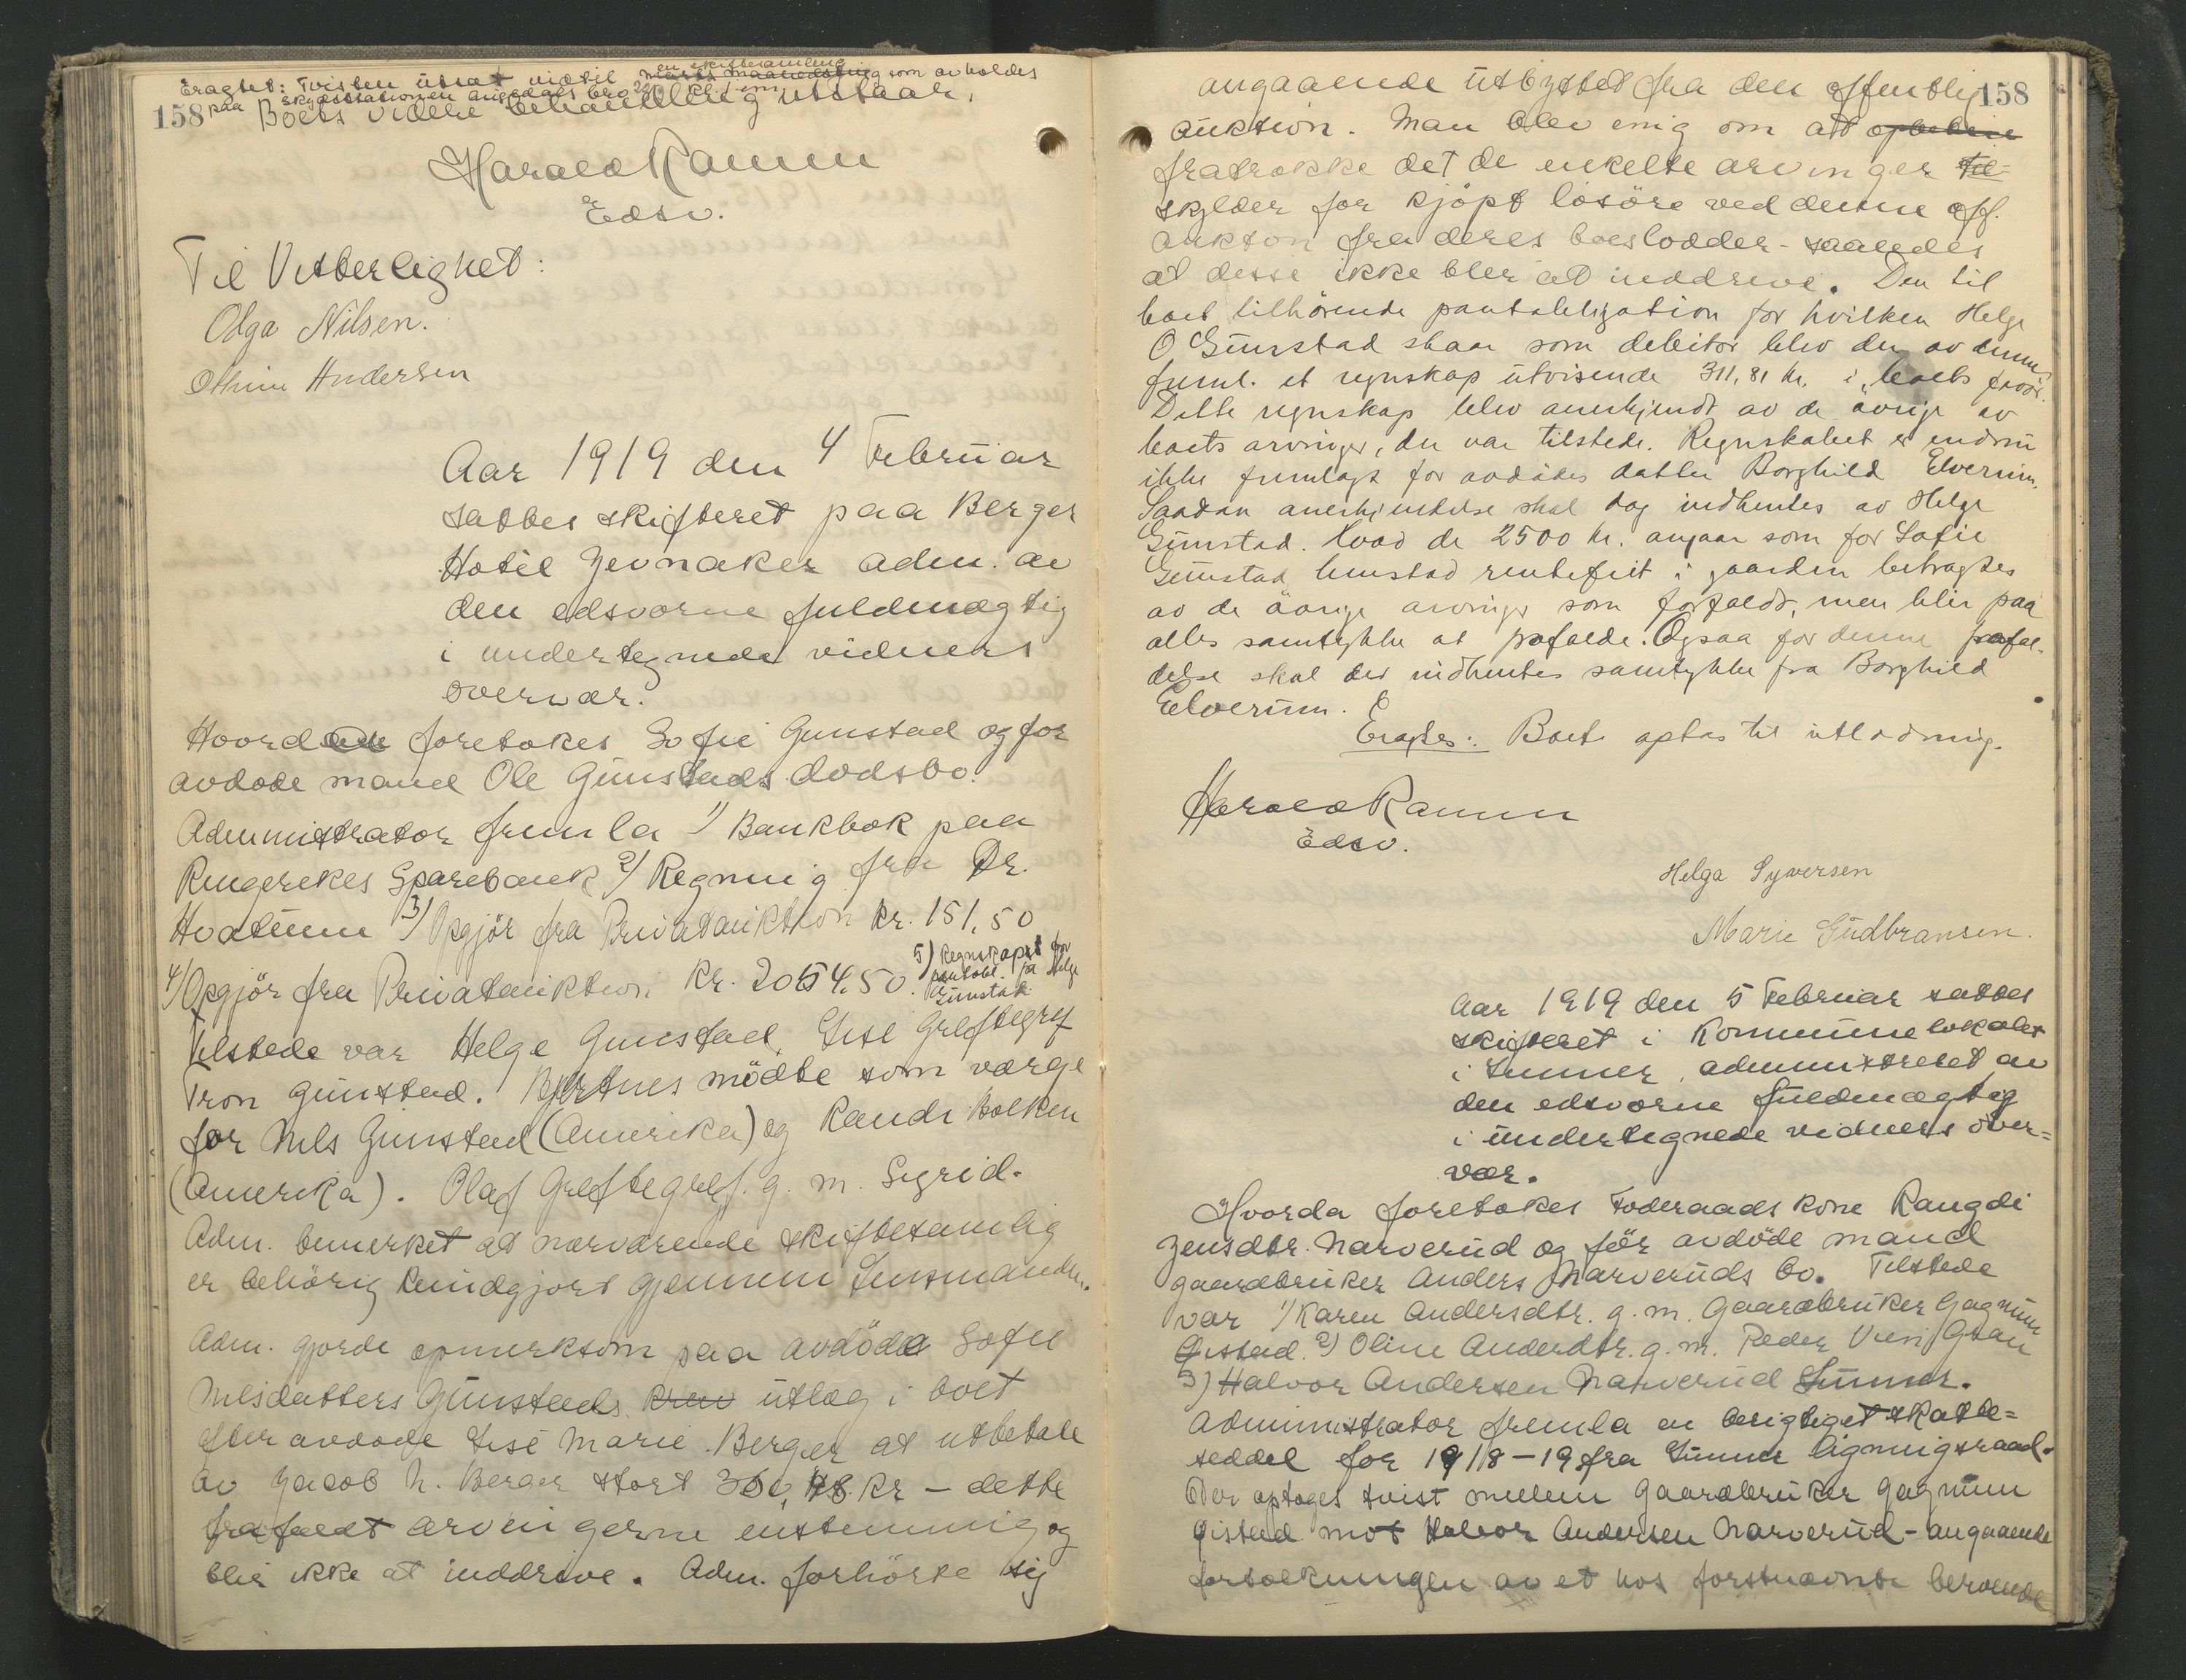 Eragtet: Tvisten utsat indtil en skiftesamling som avholdes
paa skydsstationen kl.
158 Boets videre behandling utstaar.
Harald Ramm
Edsv.
Til Vitterlighet:
Olga Nilsen.
Othine Andersen
Aar 1919 den 4 Februar
sattes skifteret paa Berger
Hotel Jevnaker adm. av
den edsvorne fuldmægtig
i undertegnede vidners
overvær.
Hvorda foretokes Sofie Gunstad og for
avdøde mand Ole Gunstads dødsbo.
Administrator fremla 1/ Bankbok paa
Ringerikes Sparebank 2/ Regning fra Dr.
Hvatum 3/ Opgjör fra Privatauktion kr. 151,50
4/ Opgjör fra Privatauktion kr. 2054,50. 5) Regnskapet for
pantobl. fra Helge
Gunstad
Tilstede var Helge Gunstad, Lise Greftegref
Tron Gunstad. Bjertnes mödte som værge
for Nils Gunstad (Amerika) og Randi Bolken
(Amerika). Olaf Greftegref. g. m. Sigrid.
Adm. bemerket at nærværende skiftesamlig
er behörig kundgjort gjennem Lensmanden.
Adm. gjorde opmerksom paa avdöde Sofie
Nilsdatters Gunstads krav utlæg i boet
efter avdøde Lise Marie Berger at utbetale
av Jacob N. Berger stort kr – dette
frafaldt arvingerne enstemmig og
blir ikke at inddrive. Adm. forhörte sig
angaaende utbyttet fra den offentlig 158
auktion. Man blev enig om at
fratrække det de enkelte arvinger til-
skylder for kjöpt lösöre ved denne off.
auktion fra deres boeslodder – saaledes
at desse ikke blir at inddrive. Den til
boet tilhörende pantobligation for hvilken Helge
O Gunstad staar som debitor blev der av denne
freml. et regnskap utvisende 311,81 kr. i boets favör.
Dette regnskap blev anerkjendt av de övrige av
boets arvinger, der var tilstede. Regnskabet er endnu
ikke fremlagt for avdödes datter Borghild Elverum.
Saadan anerkjendelse skal dog indhentes av Helge
Gunstad. Hvad de 2500 kr. angaar som for Sofie
Gunstad henstod rentefrit i gaarden betragtes
av de övrige arvinger som forfaldt, men blir paa
alles samtykke at frafalde. Ogsaa for denne frafal-
delse skal der indhentes samtykke fra Borghild
Elverum.
Eragtes: Boet optas til utlodning.
Harald Ramm
Edsv.
Helga Syversen
Marie Gudbransen.
Aar 1919 den 5 Februar sattes
skifteret i Kommunelokalet
i Lunner, administreret av
den edsvorne fuldmægtig
i undertegnede vidners over=
vær.
Hvorda foretokes Föderaadskone Rangdi
Jensdtr. Narverud og för avdöde mand
gaardbruker Anders Narveruds bo. Tilstede
var 1/ Karen Andersdtr. g. m. Gaardbruker Gagnum
Gistad. 2) Oline Andersdtr. g. m. Peder Gran
3) Halvor Andersen Narverud Lunner.
Administrator fremla en berigtiget skatte=
seddel for 1918–19 fra Lunner ligningsraad.
Der optoges tvist mellem gaardbruker Gagnum
Gistad mot Halvor Andersen Narverud – angaaende
fortolkningen av et hos förstnævnte beroende